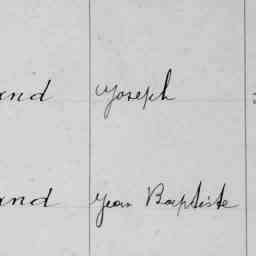 and Joseph
and Jean Baptiste